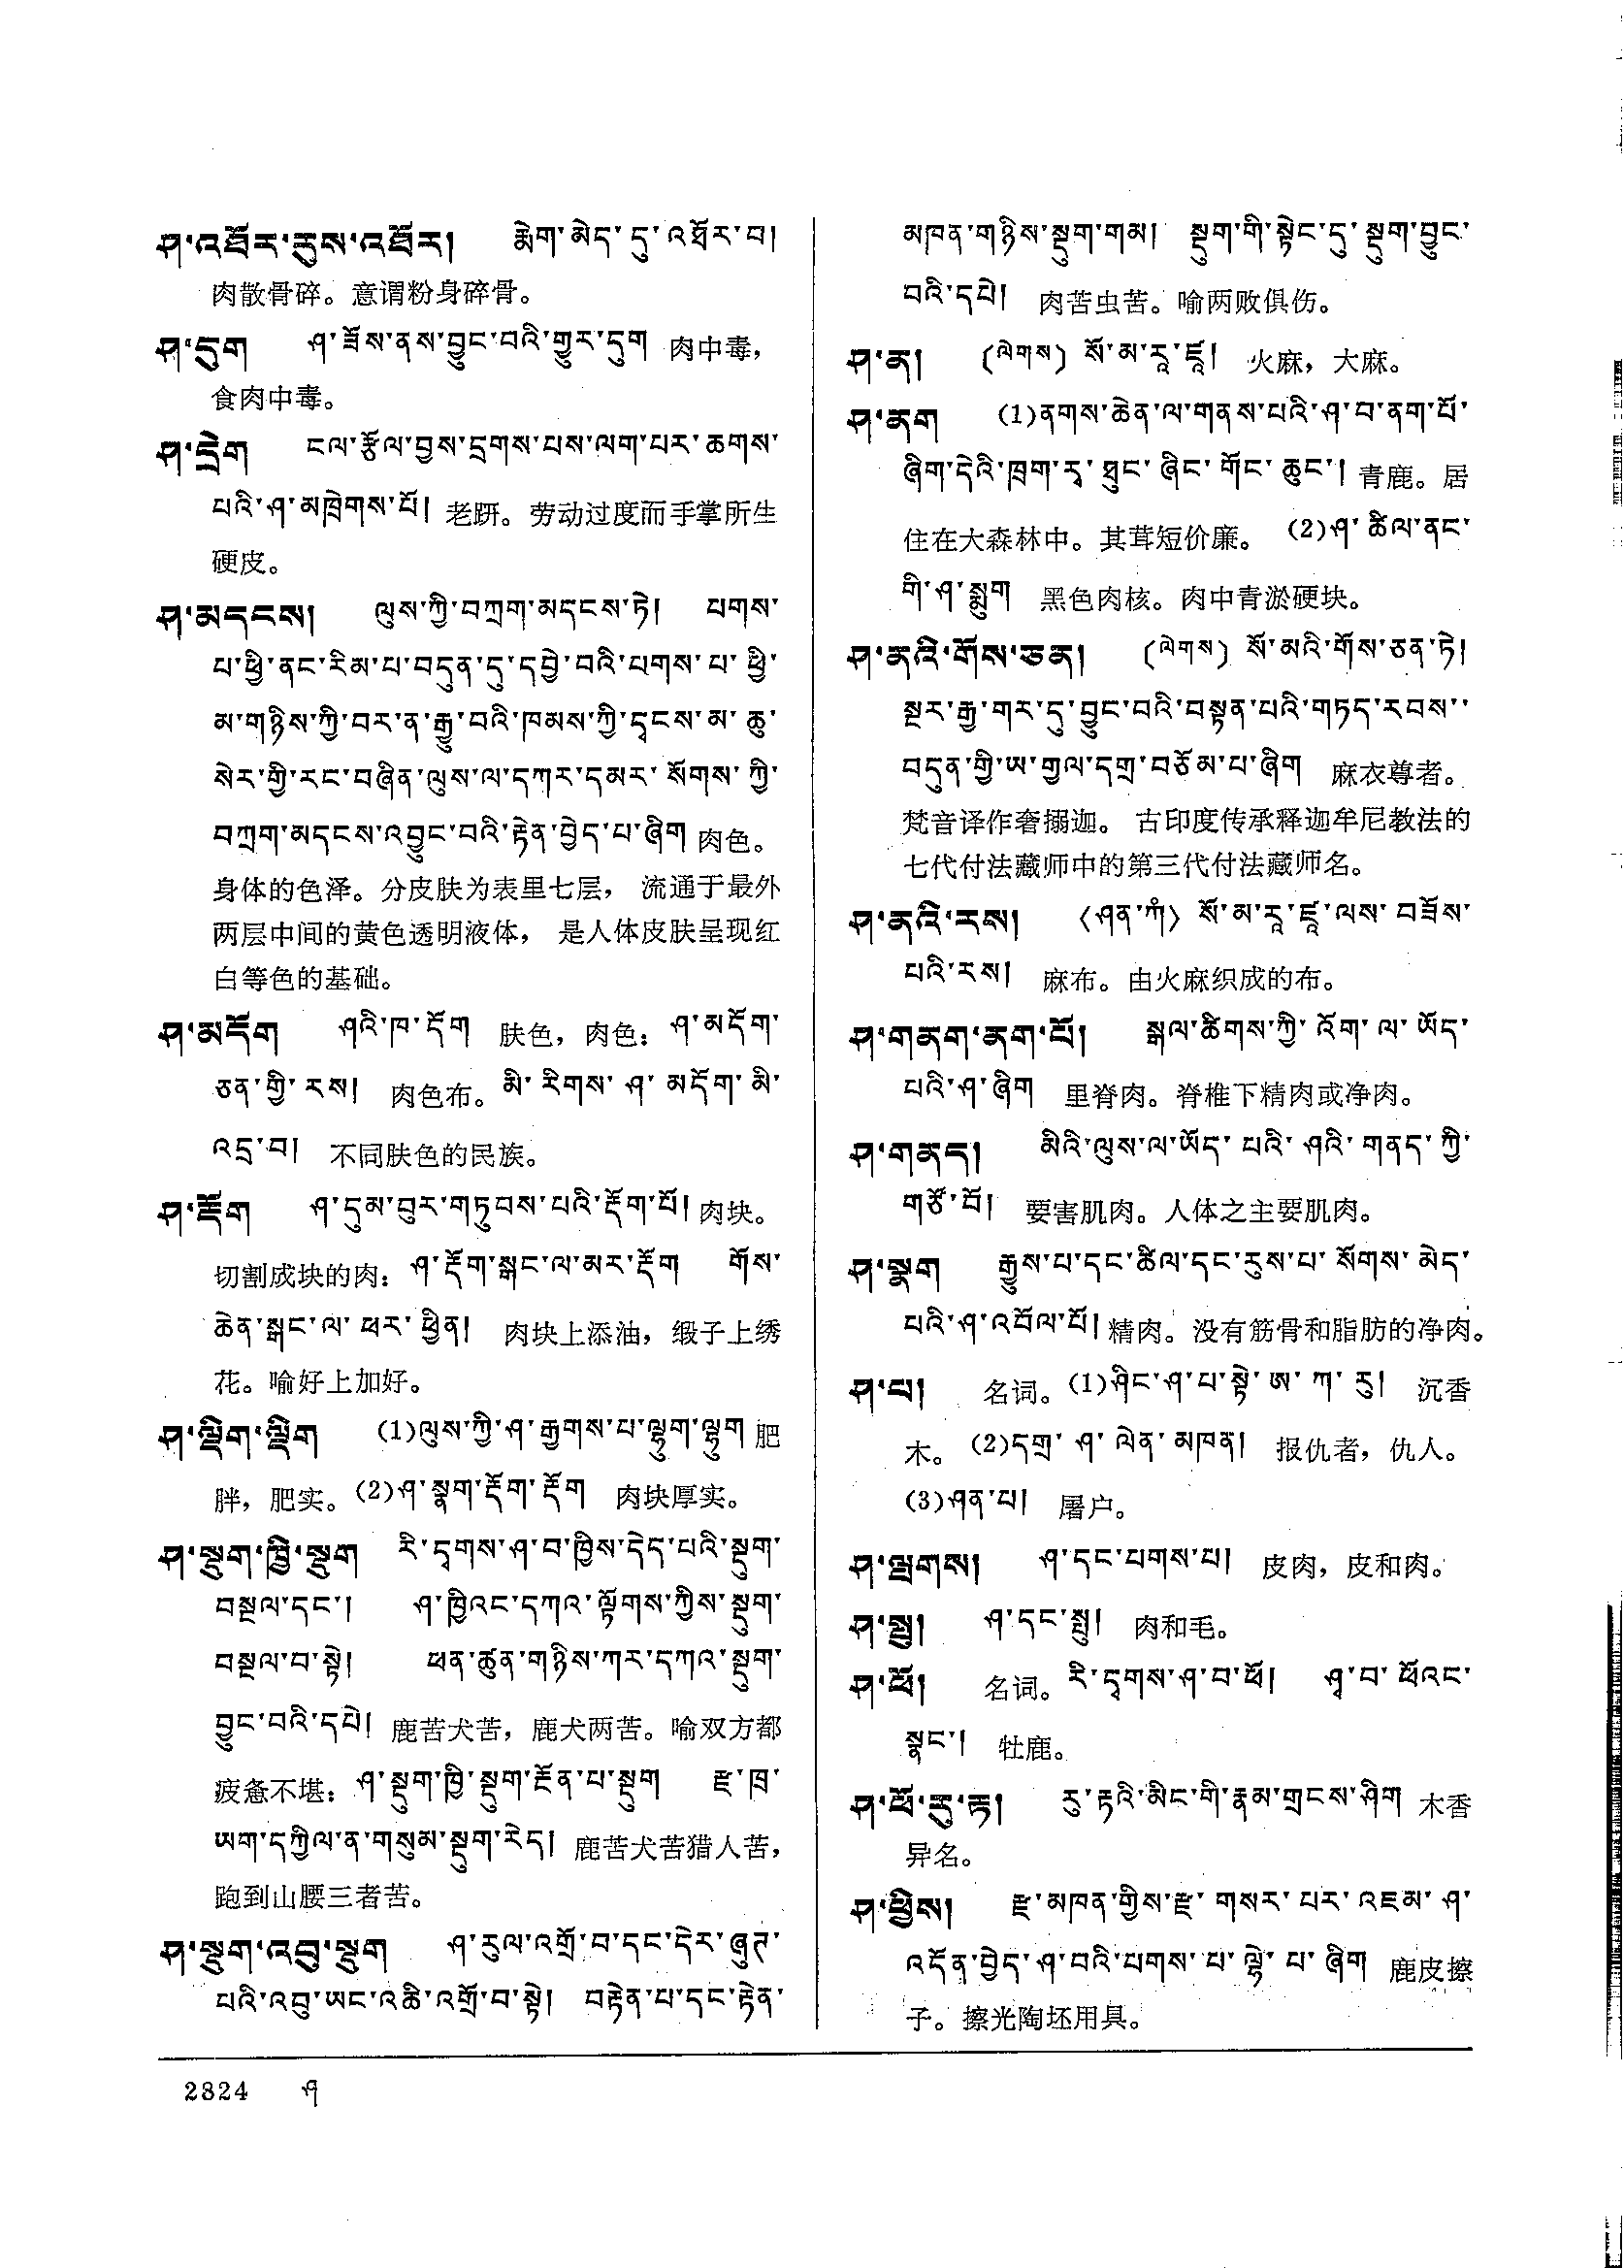 ཤ་འཐོར་རུས་འཐོར། རྨེག་མེད་དུ་འཐོར་བ།
肉散骨碎。意谓粉身碎骨。
ཤ་དུག ཤ་ཟོས་ནས་བྱུང་བའི་གྱུར་དུག 肉中毒，
食肉中毒。
ཤ་དྲེག ངལ་རྩོལ་བྱས་དྲགས་པས་ལག་པར་ཆགས་
པའི་ཤ་མཁྲེགས་པོ། 老趼。劳动过度而手掌所生
硬皮。
ཤ་མདངས། ལུས་ཀྱི་བཀྲག་མདངས་ཏེ། པགས་
པ་ཕྱི་ནང་རིམ་པ་བདུན་དུ་དབྱེ་བའི་པགས་པ་ཕྱི་
མ་གཉིས་ཀྱི་བར་ན་རྒྱུ་བའི་ཁམས་ཀྱི་དྭངས་མ་ཆུ་
སེར་གྱི་རང་བཞིན་ལུས་ལ་དཀར་དམར་སོགས་ཀྱི་
བཀྲག་མདངས་འབྱུང་བའི་རྟེན་བྱེད་པ་ཞིག 肉色。
身体的色泽。分皮肤为表里七层， 流通于最外
两层中间的黄色透明液体， 是人体皮肤呈现红
白等色的基础。
ཤ་མདོག ཤའི་ཁ་དོག 肤色，肉色：ཤ་མདོག་
ཅན་གྱི་རས། 肉色布。མི་རིགས་ཤ་མདོག་མི་
འདྲ་བ། 不同肤色的民族。
ཤ་རྡོག ཤ་དུམ་བུར་གཏུབས་པའི་རྡོག་པོ། 肉块。
切割成块的肉：ཤ་རྡོག་སྒང་ལ་མར་རྡོག གོས་
ཆེན་སྒང་ལ་ཕར་ཕྱིན། 肉块上添油，缎子上绣
花。喻好上加好。
ཤ་ལྡིག་ལྡིག (1)ལུས་ཀྱི་ཤ་རྒྱགས་པ་ལྷུག་ལྷུག 肥
胖，肥实。(2)ཤ་སྣག་རྡོག་རྡོག 肉块厚实。
ཤ་སྡུག་ཁྱི་སྡུག རི་དྭགས་ཤ་བ་ཁྱིས་དེད་པའི་སྡུག་
བསྔལ་དང་། ཤ་ཁྱིའང་དཀའ་ལྟོགས་ཀྱིས་སྡུག་
བསྔལ་བ་སྟེ། ཕན་ཚུན་གཉིས་ཀར་དཀའ་སྡུག་
བྱུང་བའི་དཔེ། 鹿苦犬苦，鹿犬两苦。喻双方都
疲惫不堪：ཤ་སྡུག་ཁྱི་སྡུག་རྔོན་པ་སྡུག རྫ་ཁྲ་
ཡག་དཀྱིལ་ན་གསུམ་སྡུག་རེད། 鹿苦犬苦猎人苦，
跑到山腰三者苦。
ཤ་སྡུག་འབུ་སྡུག ཤ་རུལ་འགྲོ་བ་དང་དེར་ཞུགས་
པའི་འབུ་ཡང་འཆི་འགྲོ་བ་སྟེ། བརྟེན་པ་དང་རྟེན་
མཁན་གཉིས་སྡུག་གམ། སྡུག་གི་སྟེང་དུ་སྡུག་བྱུང་
བའི་དཔེ། 肉苦虫苦。喻两败俱伤。
ཤ་ན། (ལེགས) སོ་མ་རཱ་ཛཱ། 火麻，大麻。
ཤ་ནག (1)ནགས་ཆེན་ལ་གནས་པའི་ཤ་བ་ནག་པོ་
ཞིག་དེའི་ཁྲག་རྭ་ཐུང་ཞིང་གོང་ཆུང་། 青鹿。居
住在大森林中。其茸短价廉。 (2)ཤ་ཚིལ་ནང་
གི་ཤ་སྨུག 黑色肉核。肉中青淤硬块。
ཤ་ནའི་གོས་ཅན། (ལེགས) སོ་མའི་གོས་ཅན་ཏེ།
སྔར་རྒྱ་གར་དུ་བྱུང་བའི་བསྟན་པའི་གཏད་རབས་
བདུན་གྱི་ཨ་གྱལ་དགྲ་བཅོམ་པ་ཞིག 麻衣尊者。
梵音译作奢搦迦。 古印度传承释迦牟尼教法的
七代付法藏师中的第三代付法藏师名。
ཤ་ནའི་རས། (ཤན་ཀཾ) སོ་མ་རཱ་ཛཱ་ལས་བཟོས་
པའི་རས། 麻布。由火麻织成的布。
ཤ་གནག་ནག་པོ། སྒལ་ཚིགས་ཀྱི་འོག་ལ་ཡོད་
པའི་ཤ་ཞིག 里脊肉。脊椎下精肉或净肉。
ཤ་གནད། མིའི་ལུས་ལ་ཡོད་པའི་ཤའི་གནད་ཀྱི་
གཙོ་བོ། 要害肌肉。人体之主要肌肉。
ཤ་སྣག རྒྱུས་པ་དང་ཚིལ་དང་རུས་པ་སོགས་མེད་
པའི་ཤ་འབོལ་པོ། 精肉。没有筋骨和脂肪的净肉。
ཤ་པ། 名词。(1)ཤིང་ཤ་པ་སྟེ་ཨ་ཀ་རུ། 沉香
木。 (2)དགྲ་ཤ་ལེན་མཁན། 报仇者，仇人。
(3)ཤན་པ། 屠户。
ཤ་ལྤགས། ཤ་དང་པགས་པ། 皮肉，皮和肉。
ཤ་སྤུ། ཤ་དང་སྤུ། 肉和毛。
ཤ་ཕོ། 名词。རི་དྭགས་ཤ་བ་ཕོ། ཤྭ་བ་ཕོའང་
སྣང་། 牡鹿。
ཤ་ཕོ་རུ་རྟ། རུ་རྟའི་མིང་གི་རྣམ་གྲངས་ཤིག 木香
异名。
ཤ་ཕྱིས། རྫ་མཁན་གྱིས་རྫ་གསར་པར་འཇམ་ཤ་
འདོན་བྱེད་ཤ་བའི་པགས་པ་ལྷེ་པ་ཞིག 鹿皮擦
子。擦光陶坯用具。
2824 ཤ